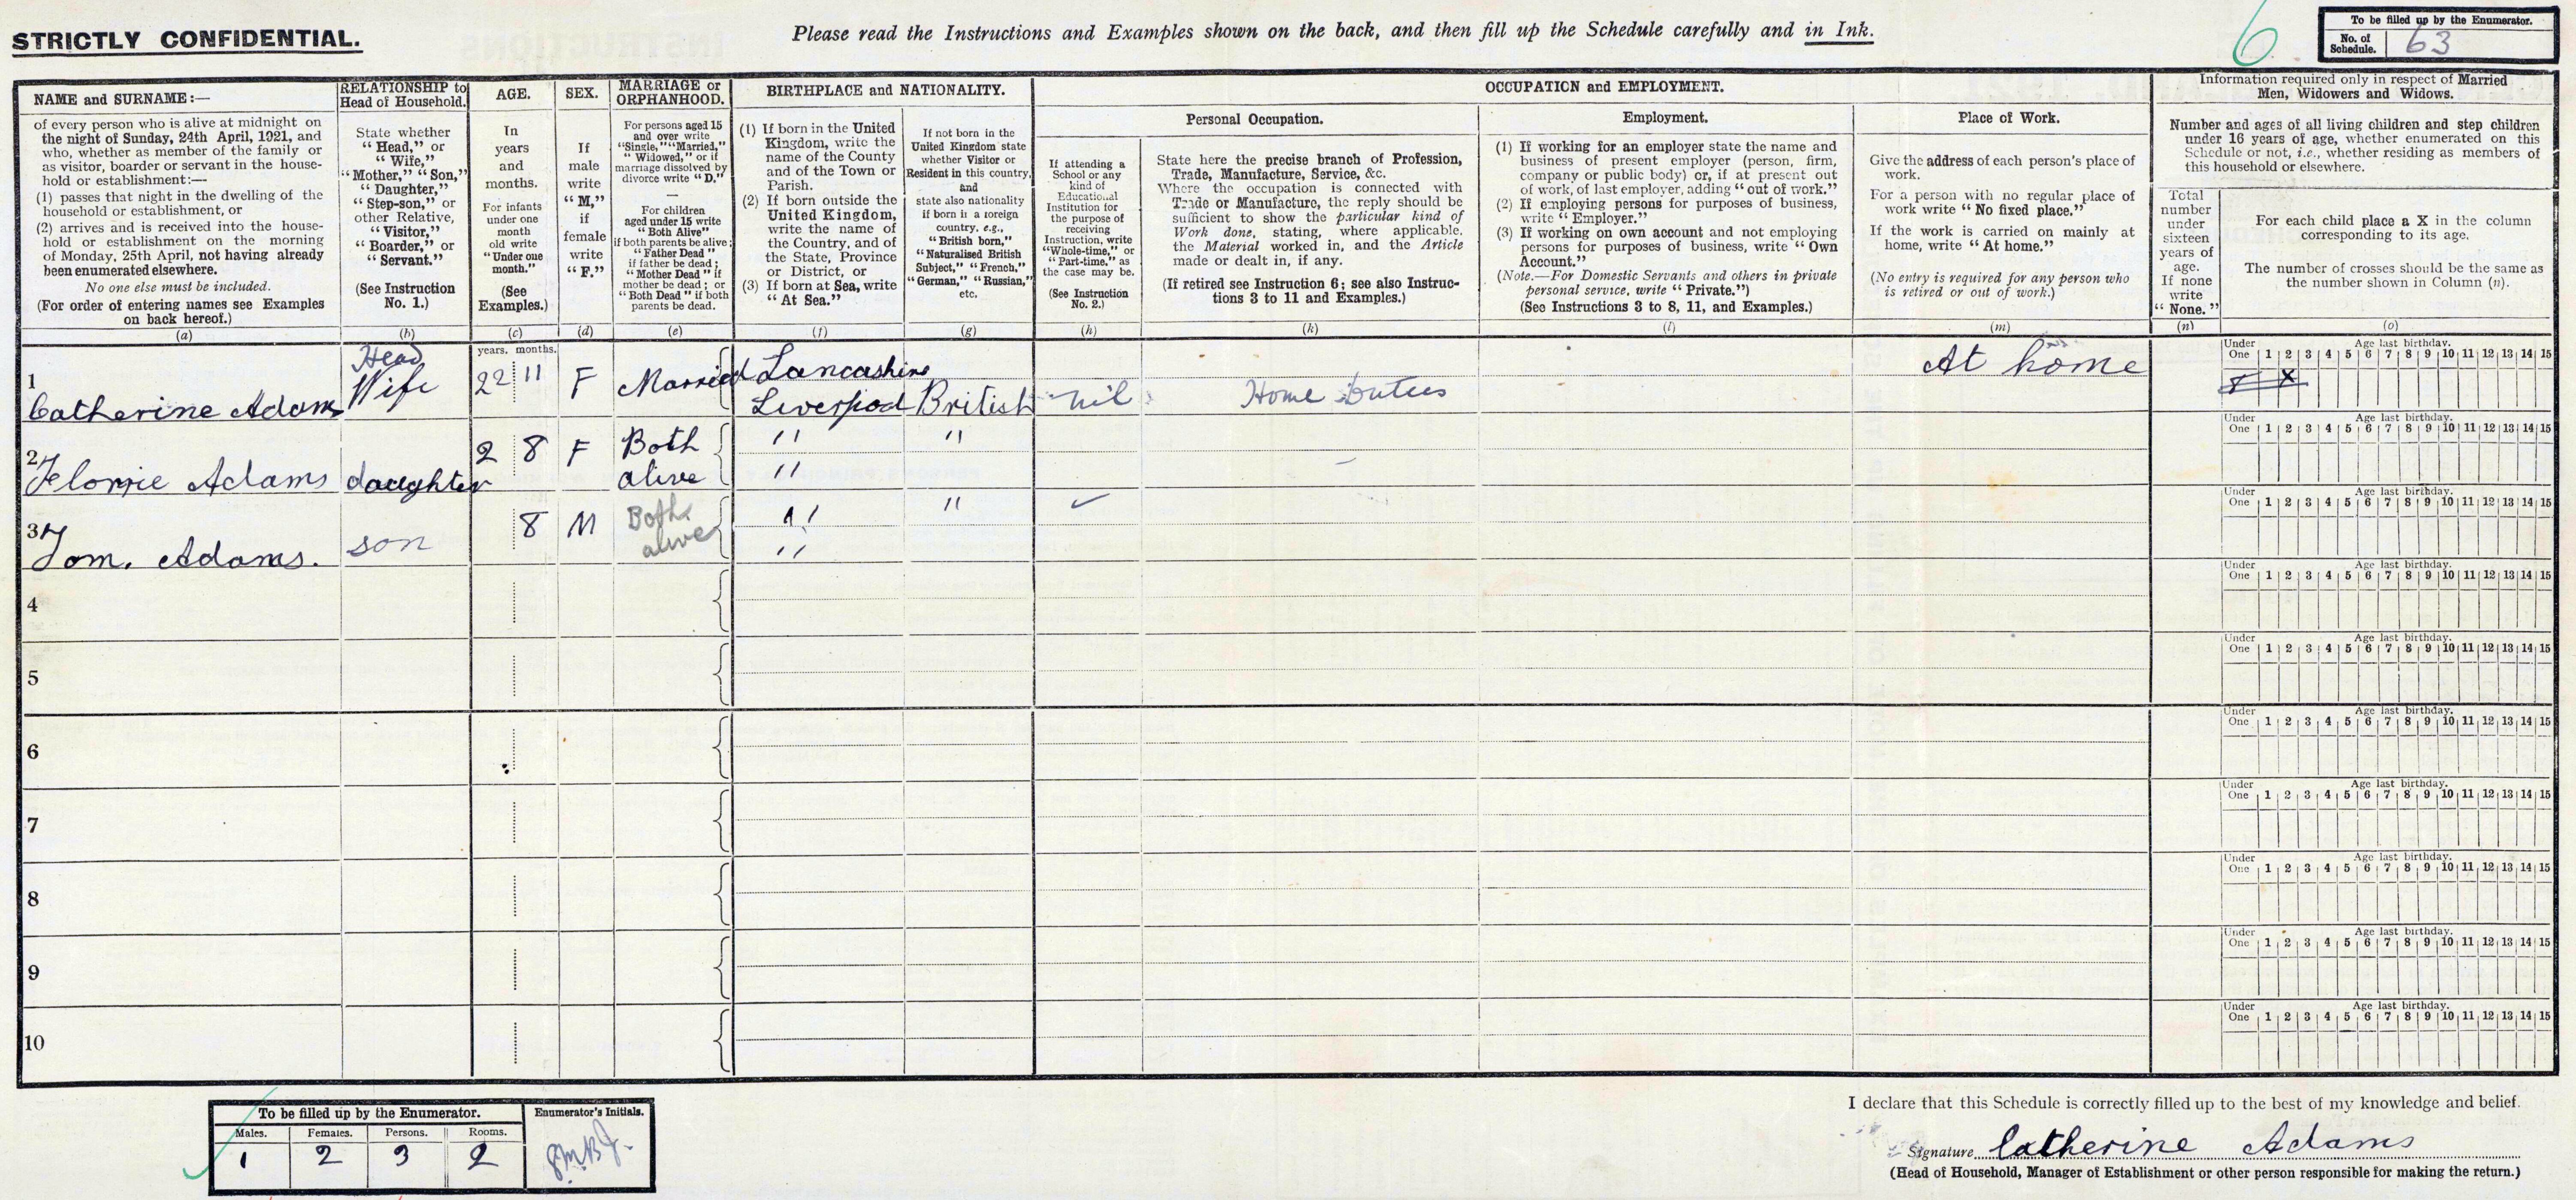 STRICTLY CONFIDENTIAL.
Please read the Instructions and Examples shown on the back, and then fill up the Schedule carefully and in Ink.
6
To be filled up by the Enumerator.
No. of Schedule. 63
NAME and SURNAME:—
of every person who is alive at midnight on
the night of Sunday, 24th April, 1921, and
who, whether as member of the family or
as visitor, boarder or servant in the house-
hold or establishment:—
(1) passes that night in the dwelling of the
household or establishment, or
(2) arrives and is received into the house-
hold or establishment on the morning
of Monday, 25th April, not having already
been enumerated elsewhere.
No one else must be included.
(For order of entering names see Examples
on back hereof.)
(a)
RELATIONSHIP to
Head of Household.
State whether
"Head," or
"Wife,"
"Mother," "Son,"
"Daughter,"
"Step-son," or
other Relative,
"Visitor,"
"Boarder," or
"Servant."
(See Instruction
No. 1.)
(b)
AGE.
In
years
and
months.
For infants
under one
month
old write
"Under one
month."
(See
Examples.)
(c)
SEX.
If
male
write
"M,"
if
female
write
"F."
(d)
MARRIAGE or
ORPHANHOOD.
For persons aged 15
and over write
"Single," "Married,"
"Widowed," or if
marriage dissolved by
divorce write "D."
—
For children
aged under 15 write
"Both Alive"
if both parents be alive;
"Father Dead"
if father be dead;
"Mother Dead" if
mother be dead; or
"Both Dead" if both
parents be dead.
(e)
BIRTHPLACE and NATIONALITY.
(1) If born in the United
Kingdom, write the
name of the County
and of the Town or
Parish.
(2) If born outside the
United Kingdom,
write the name of
the Country, and of
the State, Province
or District, or
(3) If born at Sea, write
"At Sea."
(f)
If not born in the
United Kingdom state
whether Visitor or
Resident in this country,
and
state also nationality
if born in a foreign
country, e.g.,
"British born,"
"Naturalised British
Subject," "French,"
"German," "Russian,"
etc.
(g)
OCCUPATION and EMPLOYMENT.
Personal Occupation.
If attending a
School or any
kind of
Educational
Institution for
the purpose of
receiving
Instruction, write
"Whole-time," or
"Part-time," as
the case may be.
(See Instruction
No. 2.)
(h)
State here the precise branch of Profession,
Trade, Manufacture, Service, &c.
Where the occupation is connected with
Trade or Manufacture, the reply should be
sufficient to show the particular kind of
Work done, stating, where applicable,
the Material worked in, and the Article
made or dealt in, if any.
(If retired see Instruction 6; see also Instruc-
tions 3 to 11 and Examples.)
(k)
Employment.
(1) If working for an employer state the name and
business of present employer (person, firm,
company or public body) or, if at present out
of work, of last employer, adding "out of work."
(2) If employing persons for purposes of business,
write "Employer."
(3) If working on own account and not employing
persons for purposes of business, write "Own
Account."
(Note.—For Domestic Servants and others in private
personal service, write "Private.")
(See Instructions 3 to 8, 11, and Examples.)
(l)
Place of Work.
Give the address of each person's place of
work.
For a person with no regular place of
work write "No fixed place."
If the work is carried on mainly at
home, write "At home."
(No entry is required for any person who
is retired or out of work.)
(m)
Information required only in respect of Married
Men, Widowers and Widows.
Number and ages of all living children and step children
under 16 years of age, whether enumerated on this
Schedule or not, i.e., whether residing as members of
this household or elsewhere.
Total
number
under
sixteen
years of
age.
If none
write
"None."
(n)
For each child place a X in the column
corresponding to its age.
The number of crosses should be the same as
the number shown in Column (n).
(o)
years. months.
1 Catherine Adams Head Wife 22 11 F Married Lancashire Liverpool British nil Home Duties At home
Under One Age last birthday. 1 2 3 4 5 6 7 8 9 10 11 12 13 14 15
X
2 Florrie Adams daughter 2 8 F Both alive " " "
Under One Age last birthday. 1 2 3 4 5 6 7 8 9 10 11 12 13 14 15
3 Tom. Adams. son 8 M Both alive " " "
Under One Age last birthday. 1 2 3 4 5 6 7 8 9 10 11 12 13 14 15
4
Under One Age last birthday. 1 2 3 4 5 6 7 8 9 10 11 12 13 14 15
5
Under One Age last birthday. 1 2 3 4 5 6 7 8 9 10 11 12 13 14 15
6
Under One Age last birthday. 1 2 3 4 5 6 7 8 9 10 11 12 13 14 15
7
Under One Age last birthday. 1 2 3 4 5 6 7 8 9 10 11 12 13 14 15
8
Under One Age last birthday. 1 2 3 4 5 6 7 8 9 10 11 12 13 14 15
9
Under One Age last birthday. 1 2 3 4 5 6 7 8 9 10 11 12 13 14 15
10
Under One Age last birthday. 1 2 3 4 5 6 7 8 9 10 11 12 13 14 15
To be filled up by the Enumerator.
Males. Females. Persons. Rooms.
1 2 3 2
Enumerator's Initials.
I declare that this Schedule is correctly filled up to the best of my knowledge and belief.
Signature Catherine Adams
(Head of Household, Manager of Establishment or other person responsible for making the return.)